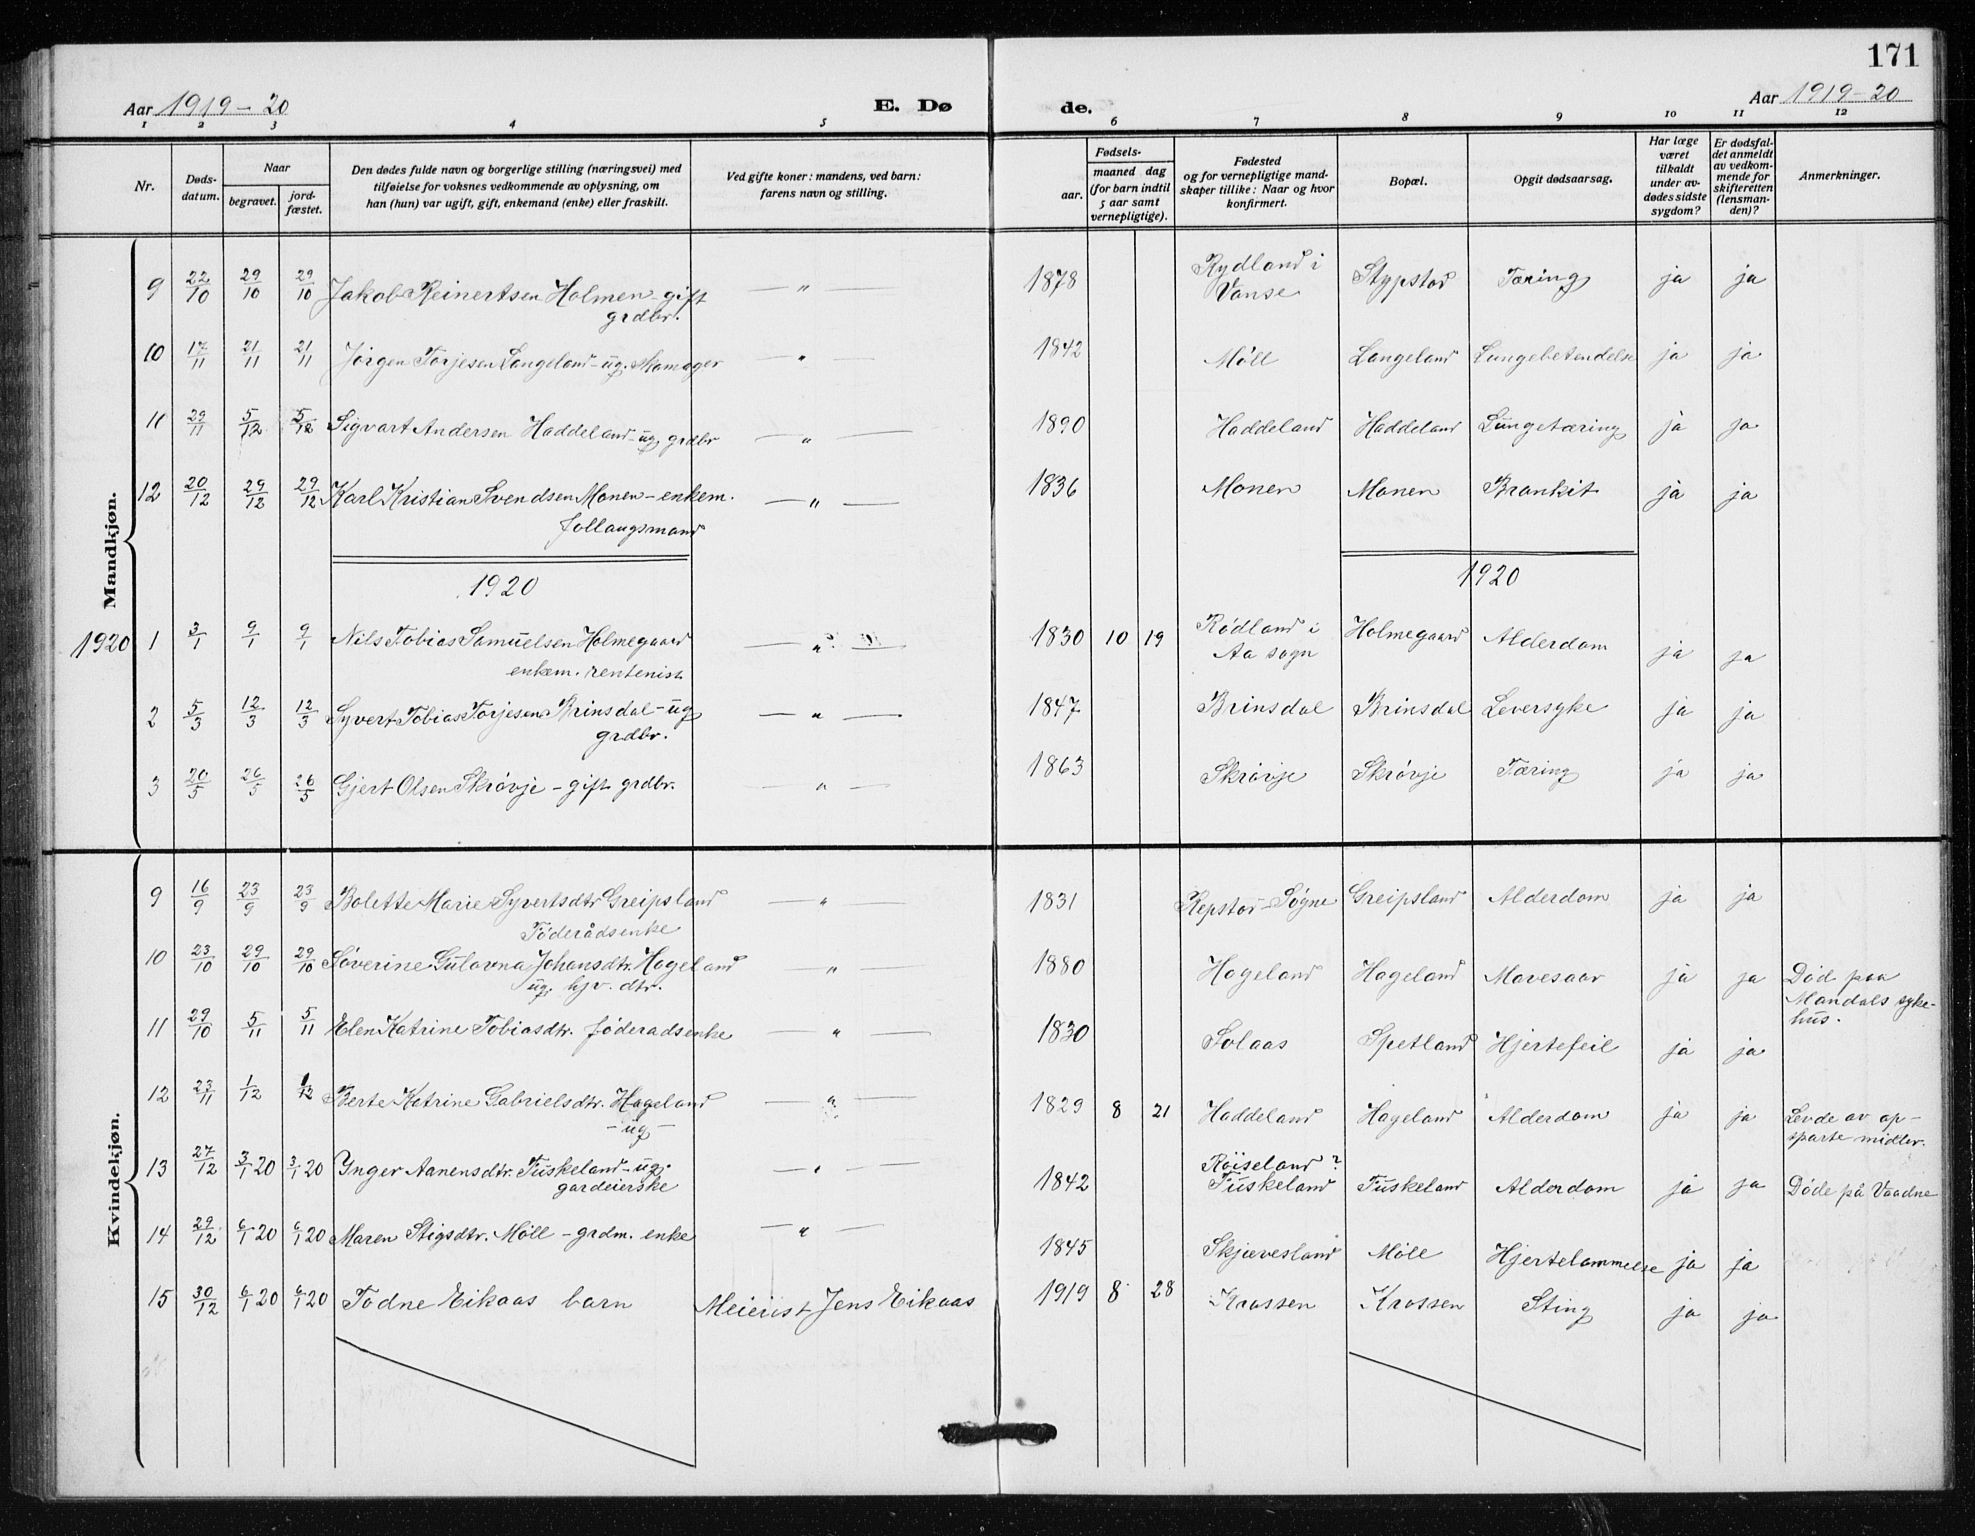 171
Aar 1919-20 E. Dø de. Aar 1919-20
1 2 3 4 5 6 7 8 9 10 11 12
Nr. Døds-datum. Naar begravet. jord-fæstet. Den dødes fulde navn og borgerlige stilling (næringsvei) med tilføielse for voksnes vedkommende av oplysning, om han (hun) var ugift, gift, enkemand (enke) eller fraskilt. Ved gifte koner: mandens, ved barn: farens navn og stilling. Fødsels- aar. maaned dag (for barn indtil 5 aar samt vernepligtige). Fødested og for vernepligtige mand-skaper tillike: Naar og hvor konfirmert. Bopæl. Opgit dødsaarsag. Har læge været tilkaldt under av-dødes sidste sygdom? Er dødsfal-det anmeldt av vedkom-mende for skifteretten (lensman-den)? Anmerkninger.
Mandkjøn.
9 22/10 29/10 29/10 Jakob Reinertsen Holmen - gift grdbr. — " — 1878 Rydland i Vanse Stypstad Tæring ja ja
10 17/11 21/11 21/11 Jørgen Torjesen Langeland - ug. — " — 1842 Møll Langeland Lungebetendelse ja ja
11 29/11 5/12 5/12 Sigvart Andersen Haddeland - ug grdbr — " — 1890 Haddeland Haddeland Lungetæring ja ja
12 20/12 29/12 29/12 Karl Kristian Svendsen Monen - enkem. — " — 1836 Monen Monen Bronkit ja ja
1920 1920
1920 1 3/1 9/1 9/1 Nils Tobias Samuelsen Holmegaard enkem. rentenist — " — 1830 10 19 Rødland i Aa sogn Holmegaard Alderdom ja ja
2 5/3 12/3 12/3 Syvert Tobias Torjesen Brinsdal - ug grdbr. — " — 1847 Brinsdal Brinsdal Leversyke ja ja
3 20/5 26/5 26/5 Gjert Olsen Skrøvje - gift grdbr. — " — 1863 Skrøvje Skrøvje Tæring ja ja
Kvindekjøn.
9 16/9 23/9 23/9 Bolette Marie Syvertsdtr Greipsland Føderådsenke — " — 1831 Repstad - Søgne Greipsland Alderdom ja ja
10 23/10 29/10 29/10 Søverine Gulovna Johansdtr. Hageland ug. hjv. dtr. — " — 1880 Hageland Hageland Mavesaar ja ja Død paa Mandals syke-hus.
11 29/10 5/11 5/11 Elen Katrine Tobiasdtr. føderadsenke — " — 1830 Solaas Spetland Hjertefeil ja ja
12 23/11 1/12 1/12 Berte Katrine Gabrielsdtr. Hageland - ug - — " — 1829 8 21 Haddeland Hageland Alderdom ja ja Levde av op-sparte midler.
13 27/12 3/1 20 3/1 20 Ynger Aanensdtr. Tuskeland - ug. gardeierske — " — 1842 Røiseland? Tuskeland Tuskeland Alderdom ja ja Døde på Vaadne
14 29/12 6/1 20 6/1 20 Maren Stigsdtr. Møll - grdm. enke — " — 1845 Skjævesland Møll Hjertelammelse ja ja
15 30/12 6/1 20 6/1 20 Todne Eikaas barn Meierist Jens Eikaas 1919 8 28 Krossen Krossen Sting ja ja